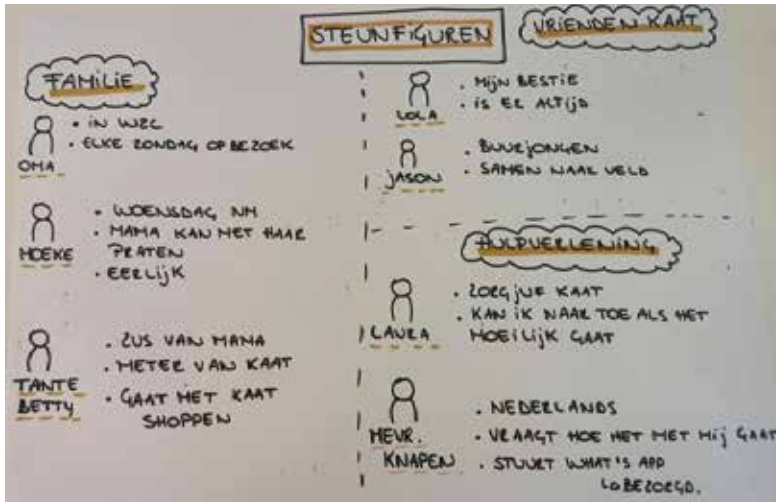 STEUNFIGUREN
VRIENDEN KAAT
FAMILIE
OMA
• IN WZC
• ELKE ZONDAG OP BEZOEK
MOEKE
• WOENSDAG NM
• MAMA KAN MET HAAR
PRATEN
• EERLIJK
TANTE
BETTY
• ZUS VAN MAMA
• METER VAN KAAT
• GAAT MET KAAT
SHOPPEN
LOLA
• MIJN BESTIE
• IS ER ALTIJD
JASON
• BUURJONGEN
• SAMEN NAAR VELD
HULPVERLENING
LAURA
• ZORGJUF KAAT
• KAN IK NAAR TOE ALS HET
MOEILIJK GAAT
MEVR.
KNAPEN
• NEDERLANDS
• VRAAGT HOE HET MET MIJ GAAT
• STUURT WHAT'S APP
↳ BEZORGD.